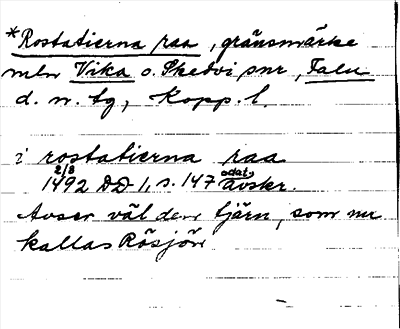 *Rostatierna raa, gränsmärke
mln Vika o. Skedvi snr, Falu
d. n. tg, Kopp. l.
i rostatierna raa
2/8 odat.
1492 DD 1, s. 147 avskr.
Avser väl den tjärn, som nu
kallas Rösjön